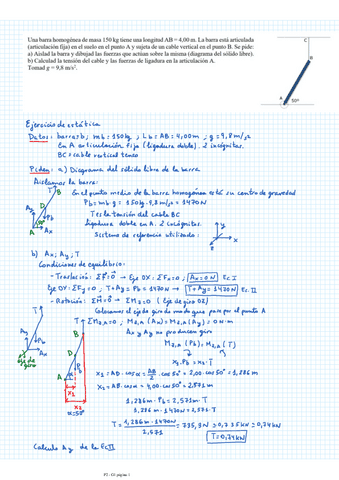 Una barra homogénea de masa 150 kg tiene una longitud AB = 4,00 m. La barra está articulada
(articulación fija) en el suelo en el punto A y sujeta de un cable vertical en el punto B. Se pide:
a) Aislad la barra y dibujad las fuerzas que actúan sobre la misma (diagrama del sólido libre).
b) Calculad la tensión del cable y las fuerzas de ligadura en la articulación A.
Tomad g = 9,8 m/s².
C
B
A
50º
Ejercicio de estática
Datos: barra AB; mb = 150 kg; Lb = AB = 4,00 m; g = 9,8 m/s²
En A articulación fija (ligadura doble). 2 incógnitas.
BC = cable vertical tenso
Piden: a) Diagrama del sólido libre de la barra
Aislamos la barra:
En el punto medio de la barra homogénea está su centro de gravedad
Pb = mb·g = 150kg·9,8 m/s² = 1470N
T es la tensión del cable BC
Ligadura doble en A. 2 incógnitas.
Sistema de referencia utilizado:
T
B
Ay
D
Pb
A
Ax
y
x
z
b) Ax; Ay; T
Condiciones de equilibrio:
- Traslación: ΣF=0 → Eje OX: ΣFx=0; Ax=0N Ec I
Eje OY: ΣFy=0; T+Ay=Pb=1470N → T+Ay=1470N Ec. II
- Rotación: ΣM=0 → ΣMz=0 (Eje de giro OZ)
Colocamos el eje de giro de modo que pase por el punto A
ΣMz,A=0; Mz,A(Ax)=Mz,A(Ay)=0N·m
Ax y Ay no producen giro
Mz,A(Pb)=Mz,A(T)
x1·Pb = x2·T
x1=AB·cosα=AB/2·cos50º=2,00·cos50º=1,286m
x2=AB·cosα=4,00·cos50º=2,571m
1,286m·Pb=2,571m·T
1,286m·1470N=2,571m·T
T=1,286m·1470N/2,571=735,3N≈0,735kN≈0,74kN
T=0,74kN
T
Ay
Pb
Ax
eje de giro
T
B
D
A
x1
x2
α=50º
Calculo Ay de la Ec II